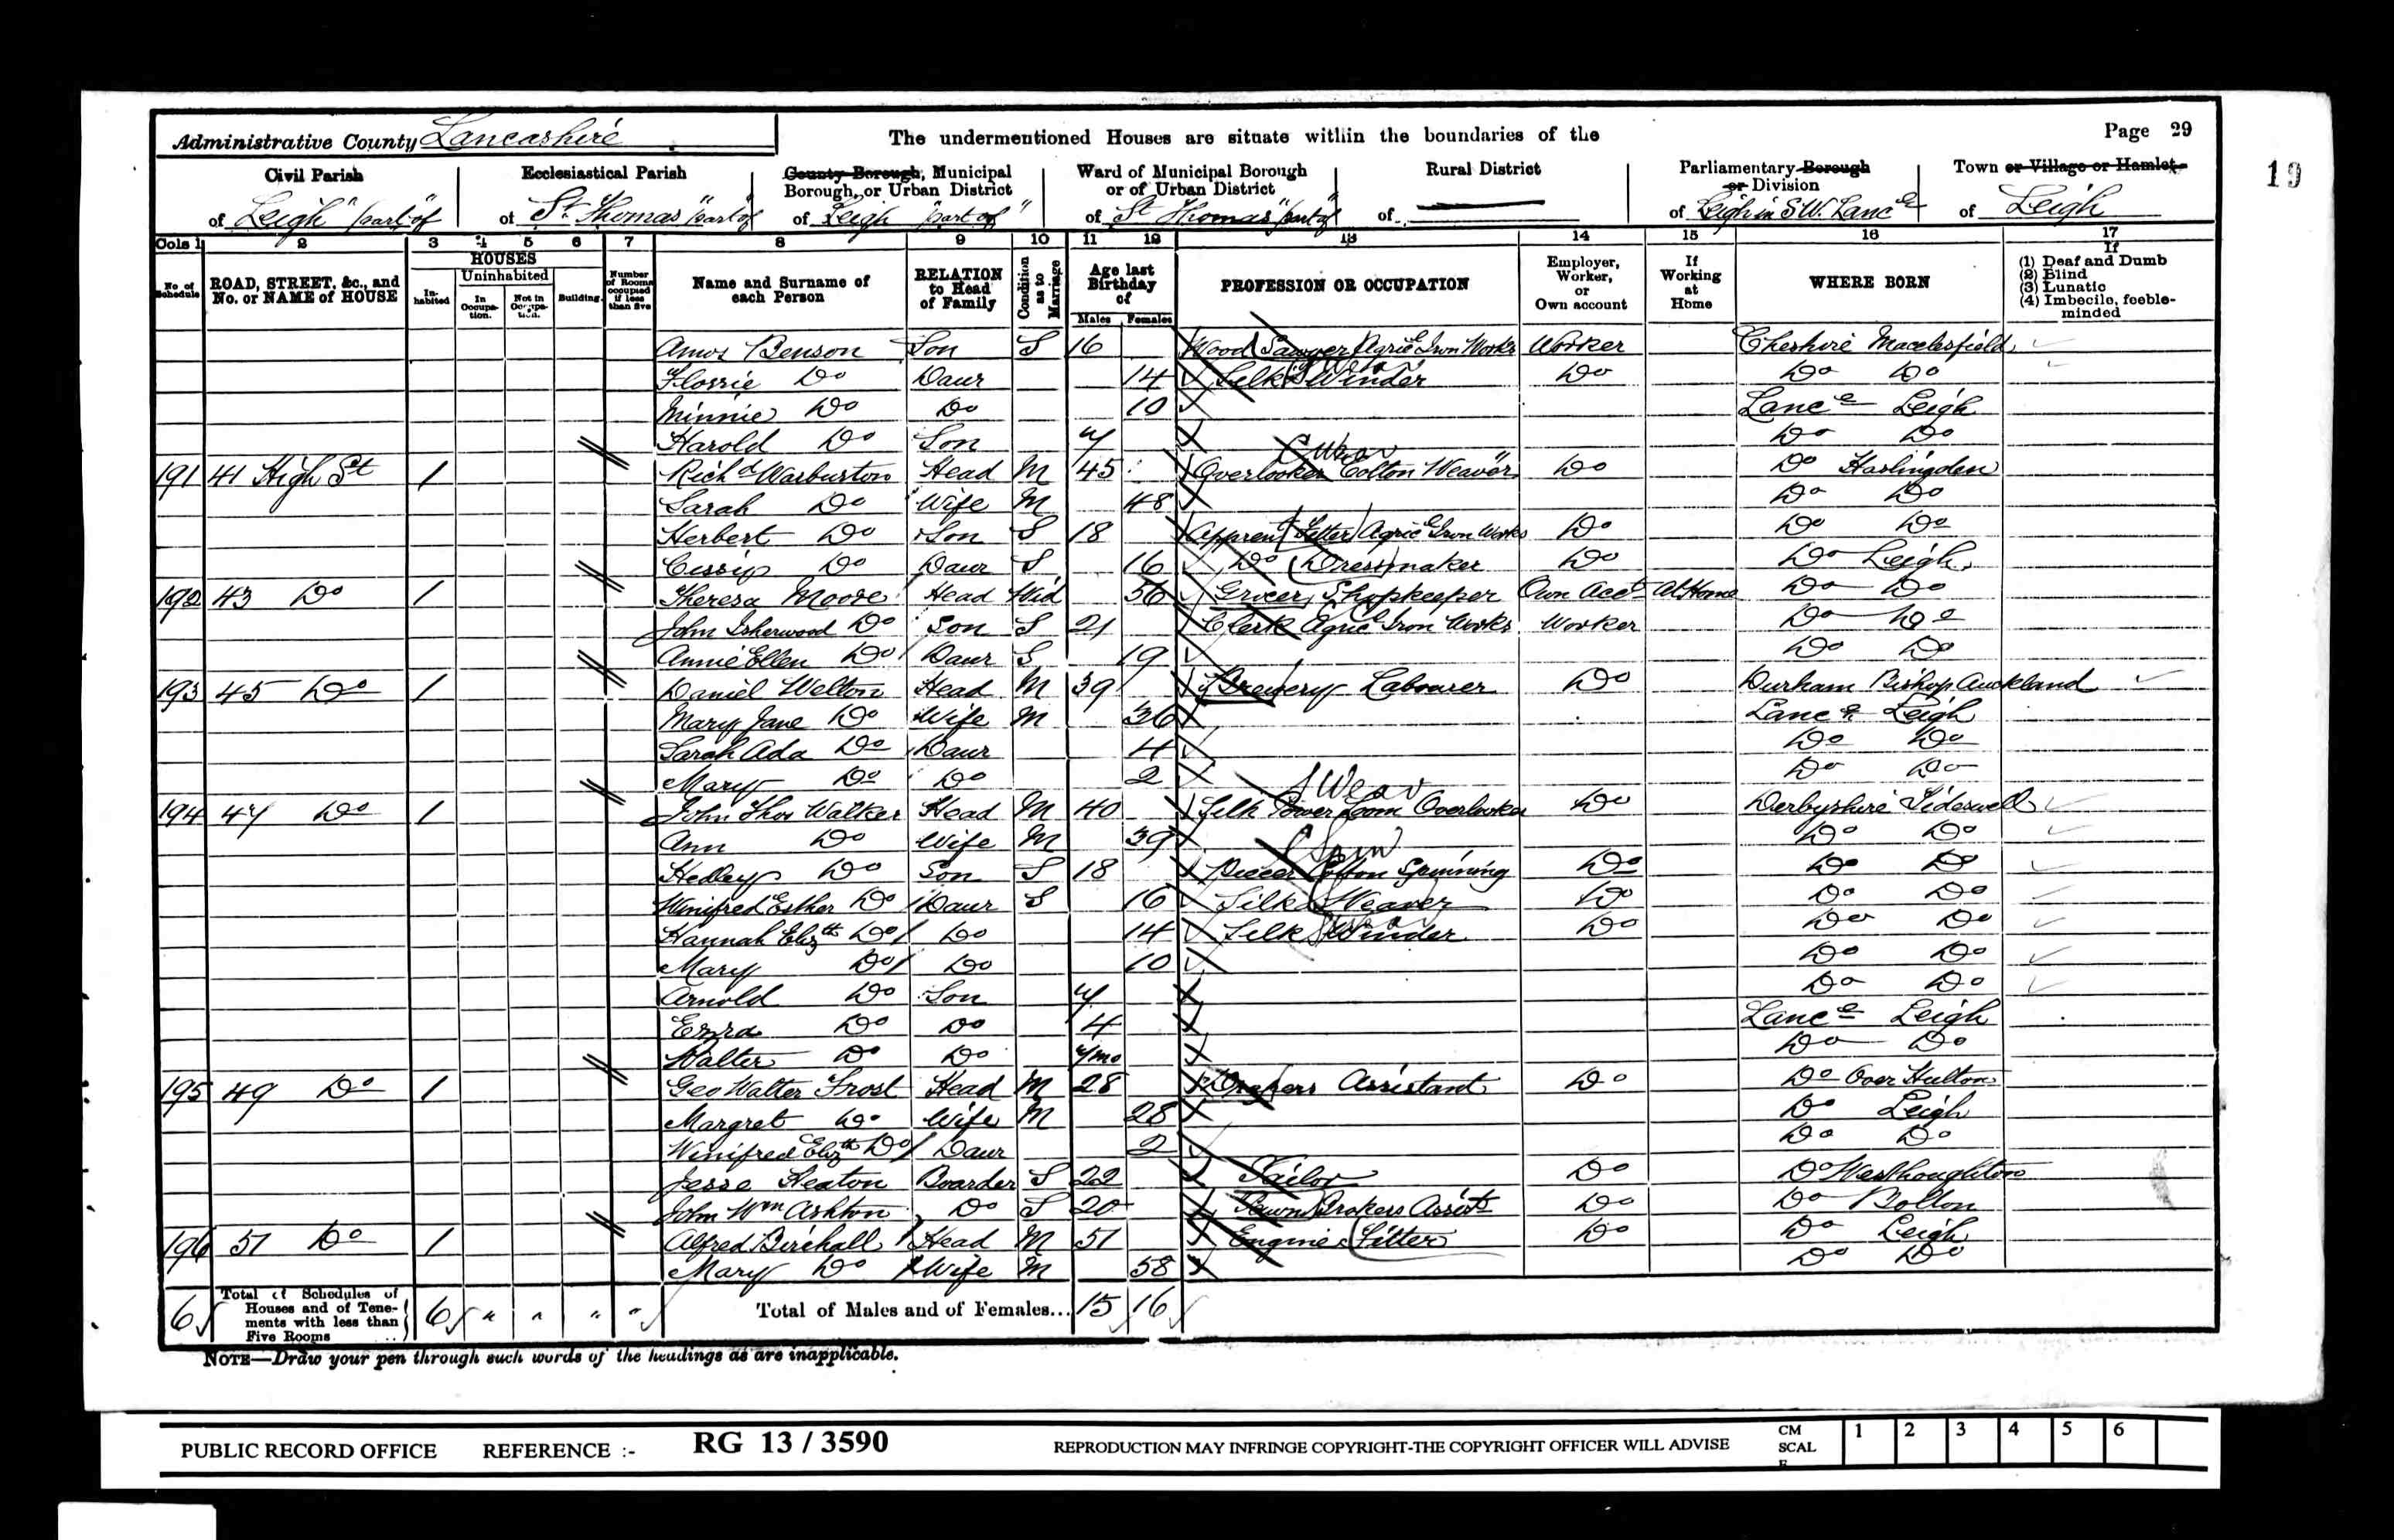 Administrative County Lancashire
The undermentioned Houses are situate within the boundaries of the
Page 29
19
Civil Parish of Leigh "part of"
Ecclesiastical Parish of St. Thomas "part of"
County Borough, Municipal Borough, or Urban District of Leigh "part of"
Ward of Municipal Borough or of Urban District of St Thomas "part of"
Rural District of
Parliamentary Borough or Division of Leigh in S.W. Lanc e
Town or Village or Hamlet of Leigh
Cols 1 2 3 4 5 6 7 8 9 10 11 12 13 14 15 16 17
No. of Schedule
ROAD, STREET, &c., and No. or NAME of HOUSE
HOUSES
In-habited
Uninhabited
In Occupa-tion.
Not in Occupa-tion.
Building.
Number of Rooms occupied if less than five
Name and Surname of each Person
RELATION to Head of Family
Condition as to Marriage
Age last Birthday of
Males Females
PROFESSION OR OCCUPATION
Employer, Worker, or Own account
If Working at Home
WHERE BORN
If
(1) Deaf and Dumb
(2) Blind
(3) Lunatic
(4) Imbecile, feeble-minded
Amos Benson Son S 16 Wood Sawyer Agric Iron Works Worker Cheshire Macclesfield
Flossie Do Daur 14 Silk Winder Do Do Do
Minnie Do Do 10 Lanc e Leigh
Harold Do Son 7 Do Do
191 41 High St 1 Rich d Warburton Head M 45 Overlooker Cotton Weaver Do Do Haslingden
Sarah Do Wife M 48 Do Do
Herbert Do Son S 18 Apprent Fitter Agric Iron Works Do Do Do
Cissie Do Daur S 16 Do Dressmaker Do Do Leigh
192 43 Do 1 Theresa Moore Head Wid 56 Grocer, Shopkeeper Own Acct At Home Do Do
John Isherwood Do Son S 21 Clerk Agric Iron Works Worker Do Do
Annie Ellen Do Daur S 19 Do Do
193 45 Do 1 Daniel Welton Head M 39 Brewery Labourer Do Durham Bishop Auckland
Mary Jane Do Wife M 36 Lanc e Leigh
Sarah Ada Do Daur 4 Do Do
Mary Do Do 2 Do Do
194 47 Do 1 John Thos Walker Head M 40 Silk Power Loom Overlooker Do Derbyshire Tideswell
Ann Do Wife M 39 Do Do
Hedley Do Son S 18 Piecer Cotton Spinning Do Do Do
Winifred Esther Do Daur S 16 Silk Weaver Do Do Do
Hannah Elizth Do Do 14 Silk Winder Do Do Do
Mary Do Do 10 Do Do
Arnold Do Son 7 Do Do
Ezra Do Do 4 Lanc e Leigh
Walter Do Do 7mo Do Do
195 49 Do 1 Geo Walter Frost Head M 28 Drapers Assistant Do Do Over Hulton
Margret Do Wife M 28 Do Leigh
Winifred Elizth Do Daur 2 Do Do
Jesse Heaton Boarder S 22 Tailor Do Do Westhoughton
John Wm Ashton Do S 20 Pawn Brokers Assist Do Do Bolton
196 51 Do 1 Alfred Birchall Head M 51 Engine Fitter Do Do Leigh
Mary Do Wife M 58 Do Do
6 Total of Schedules of Houses and of Tenements with less than Five Rooms 6 " " " " Total of Males and of Females... 15 16
NOTE—Draw your pen through such words of the headings as are inapplicable.
PUBLIC RECORD OFFICE REFERENCE :- RG 13 / 3590 REPRODUCTION MAY INFRINGE COPYRIGHT-THE COPYRIGHT OFFICER WILL ADVISE CM SCALE 1 2 3 4 5 6